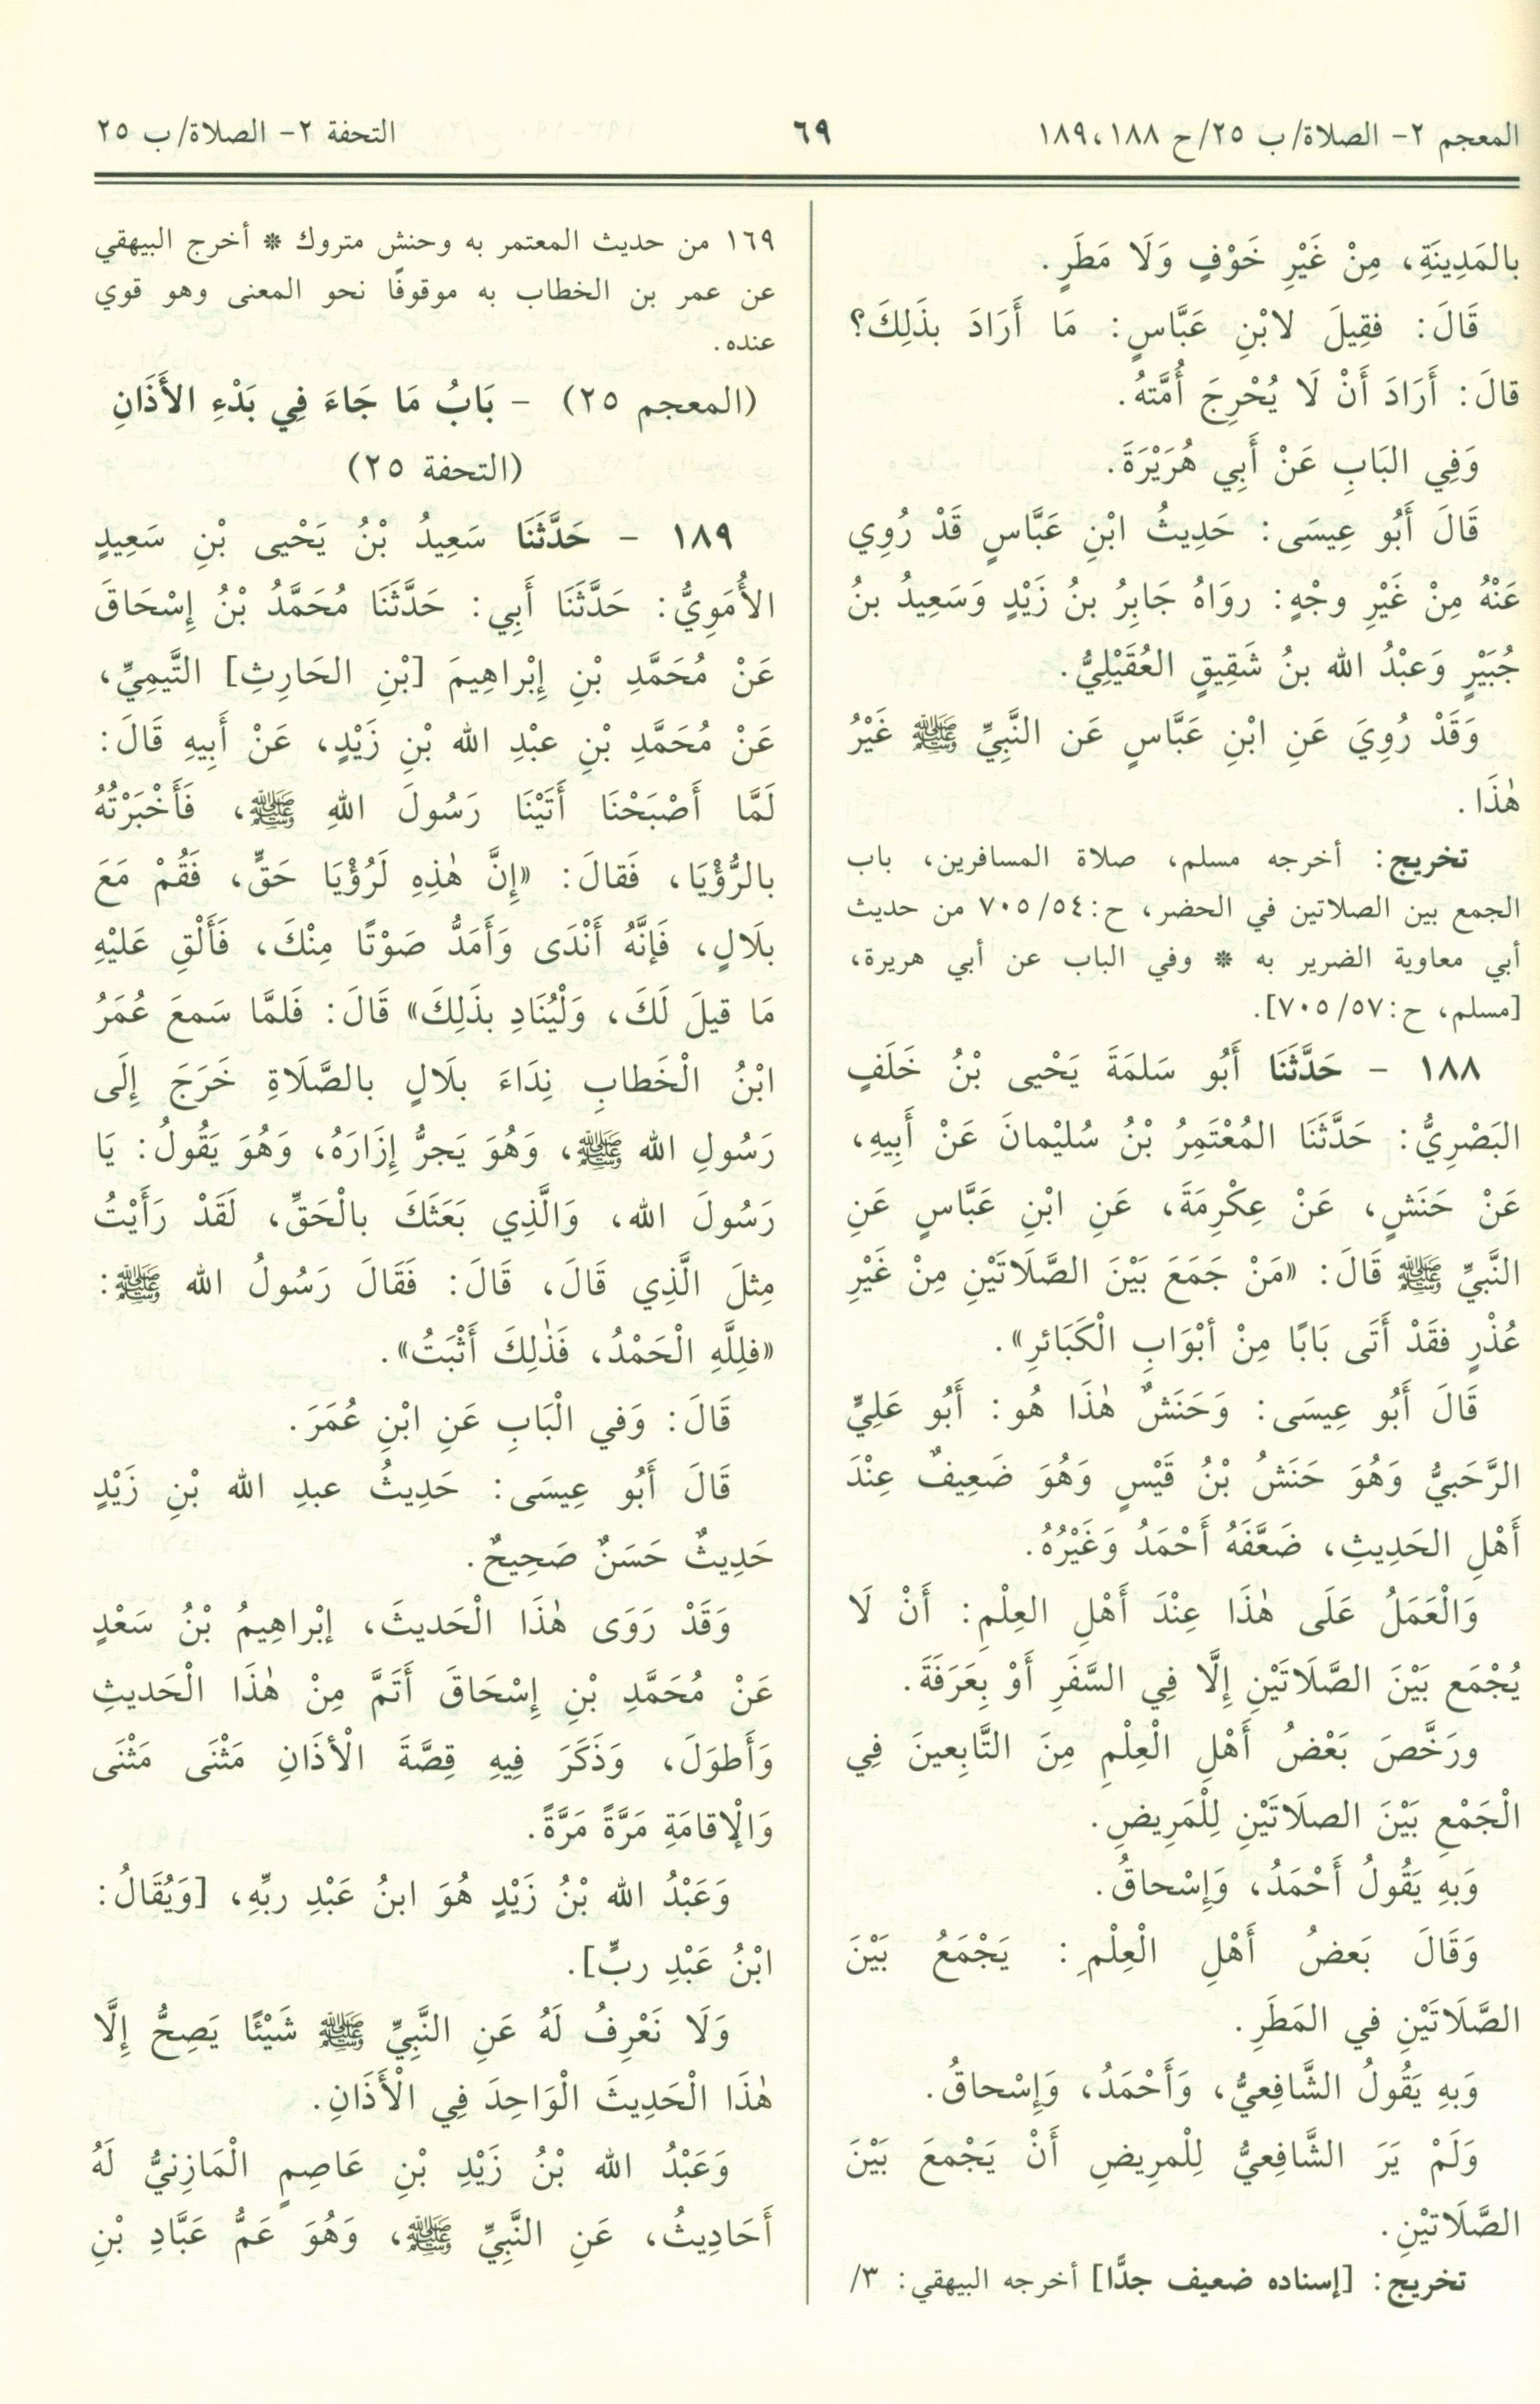 المعجم ٢- الصلاة/ ب ٢٥/ ح ١٨٨، ١٨٩
٦٩
التحفة ٢- الصلاة/ ب ٢٥
بالمَدِينَةِ، مِنْ غَيْرِ خَوْفٍ وَلَا مَطَرٍ.
قَالَ: فقِيلَ لابْنِ عَبَّاسٍ: مَا أَرَادَ بذَلِكَ؟
قالَ: أَرَادَ أَنْ لَا يُحْرِجَ أُمَّتهُ.
وَفِي البَابِ عَنْ أَبِي هُرَيْرَةَ.
قَالَ أَبُو عِيسَى: حَدِيثُ ابْنِ عَبَّاسٍ قَدْ رُوِي
عَنْهُ مِنْ غَيْرِ وجْهٍ: روَاهُ جَابِرُ بنُ زَيْدٍ وَسَعِيدُ بنُ
جُبَيْرٍ وَعبْدُ الله بنُ شَقِيقٍ العُقَيْلِيُّ.
وَقَدْ رُوِيَ عَنِ ابْنِ عَبَّاسٍ عَن النَّبِيِّ ﷺ غَيْرُ
هٰذَا.
تخريج: أخرجه مسلم، صلاة المسافرين، باب
الجمع بين الصلاتين في الحضر، ح: ٥٤/ ٧٠٥ من حديث
أبي معاوية الضرير به * وفي الباب عن أبي هريرة،
[مسلم، ح: ٥٧/ ٧٠٥].
١٨٨ - حَدَّثَنَا أَبُو سَلمَةَ يَحْيى بْنُ خَلَفٍ
البَصْرِيُّ: حَدَّثَنَا المُعْتَمِرُ بْنُ سُليْمانَ عَنْ أَبِيهِ،
عَنْ حَنَشٍ، عَنْ عِكْرِمَةَ، عَنِ ابْنِ عَبَّاسٍ عَنِ
النَّبِيِّ ﷺ قَالَ: «مَنْ جَمَعَ بَيْنَ الصَّلَاتَيْنِ مِنْ غَيْرِ
عُذْرٍ فقَدْ أَتَى بَابًا مِنْ أبْوَابِ الْكَبَائرِ».
قَالَ أَبُو عِيسَى: وَحَنَشٌ هٰذَا هُو: أَبُو عَلِيٍّ
الرَّحَبيُّ وَهُوَ حَنَشُ بْنُ قَيْسٍ وَهُوَ ضَعِيفٌ عِنْدَ
أَهْلِ الحَدِيثِ، ضَعَّفَهُ أَحْمَدُ وَغَيْرُهُ.
وَالْعَمَلُ عَلَى هٰذَا عِنْدَ أَهْلِ العِلْمِ: أَنْ لَا
يُجْمَع بَيْنَ الصَّلَاتَيْنِ إِلَّا فِي السَّفَرِ أَوْ بِعَرَفَةَ.
ورَخَّصَ بَعْضُ أَهْلِ الْعِلْمِ مِنَ التَّابِعينَ فِي
الْجَمْعِ بَيْنَ الصلَاتَيْنِ لِلْمَرِيضِ.
وَبهِ يَقُولُ أَحْمَدُ، وَإِسْحاقُ.
وَقَالَ بَعضُ أَهْلِ الْعِلْمِ: يَجْمَعُ بَيْنَ
الصَّلَاتَيْنِ في المَطَرِ.
وَبهِ يَقُولُ الشَّافِعيُّ، وَأَحْمَدُ، وَإِسْحاقُ.
وَلَمْ يَرَ الشَّافِعيُّ لِلْمرِيضِ أَنْ يَجْمعَ بَيْنَ
الصَّلَاتيْنِ.
تخريج: [إسناده ضعيف جدًّا] أخرجه البيهقي: ٣/
١٦٩ من حديث المعتمر به وحنش متروك * أخرج البيهقي
عن عمر بن الخطاب به موقوفًا نحو المعنى وهو قوي
عنده.
(المعجم ٢٥) - بَابُ مَا جَاءَ فِي بَدْءِ الأَذَانِ
(التحفة ٢٥)
١٨٩ - حَدَّثَنَا سَعِيدُ بْنُ يَحْيى بْنِ سَعِيدٍ
الأُمَوِيُّ: حَدَّثَنَا أَبِي: حَدَّثَنَا مُحَمَّدُ بْنُ إِسْحَاقَ
عَنْ مُحَمَّدِ بْنِ إِبْراهِيمَ [بْنِ الحَارِثِ] التَّيمِيِّ،
عَنْ مُحَمَّدِ بْنِ عبْدِ الله بْنِ زَيْدٍ، عَنْ أَبِيهِ قَالَ:
لَمَّا أَصْبَحْنَا أَتَيْنَا رَسُولَ اللهِ ﷺ، فَأَخْبَرْتُهُ
بالرُّؤْيَا، فَقالَ: «إِنَّ هٰذِهِ لَرُؤْيَا حَقٍّ، فَقُمْ مَعَ
بلَالٍ، فَإنَّهُ أَنْدَى وَأَمَدُّ صَوْتًا مِنْكَ، فَأَلْقِ عَليْهِ
مَا قيلَ لَكَ، وَلْيُنَادِ بذَلِكَ» قَالَ: فَلمَّا سَمعَ عُمَرُ
ابْنُ الْخَطابِ نِدَاءَ بلَالٍ بالصَّلَاةِ خَرَجَ إِلَى
رَسُولِ الله ﷺ، وَهُوَ يَجرُّ إِزَارَهُ، وَهُوَ يَقُولُ: يَا
رَسُولَ الله، وَالَّذِي بَعَثَكَ بالْحَقِّ، لَقَدْ رَأَيْتُ
مِثلَ الَّذِي قَالَ، قَالَ: فَقَالَ رَسُولُ الله ﷺ:
«فلِلَّهِ الْحَمْدُ، فَذٰلِكَ أَثْبَتُ».
قَالَ: وَفي الْبَابِ عَنِ ابْنِ عُمَرَ.
قَالَ أَبُو عِيسَى: حَدِيثُ عبدِ الله بْنِ زَيْدٍ
حَدِيثٌ حَسَنٌ صَحِيحٌ.
وَقَدْ رَوَى هٰذَا الْحَديثَ، إبْراهِيمُ بْنُ سَعْدٍ
عَنْ مُحَمَّدِ بْنِ إِسْحَاقَ أَتَمَّ مِنْ هٰذَا الْحَديثِ
وَأَطوَلَ، وَذَكَرَ فِيهِ قِصَّةَ الْأذَانِ مَثْنَى مَثْنَى
وَالْإقامَةِ مَرَّةً مَرَّةً.
وَعَبْدُ الله بْنُ زَيْدٍ هُوَ ابنُ عَبْدِ ربِّهِ، [وَيُقَالُ:
ابْنُ عَبْدِ ربٍّ].
وَلَا نَعْرِفُ لَهُ عَنِ النَّبِيِّ ﷺ شَيْئًا يَصِحُّ إِلَّا
هٰذَا الْحَدِيثَ الْوَاحِدَ فِي الْأَذَانِ.
وَعَبْدُ الله بْنُ زَيْدِ بْنِ عَاصِمٍ الْمَازِنيُّ لَهُ
أَحَادِيثُ، عَنِ النَّبِيِّ ﷺ، وَهُوَ عَمُّ عَبَّادِ بْنِ